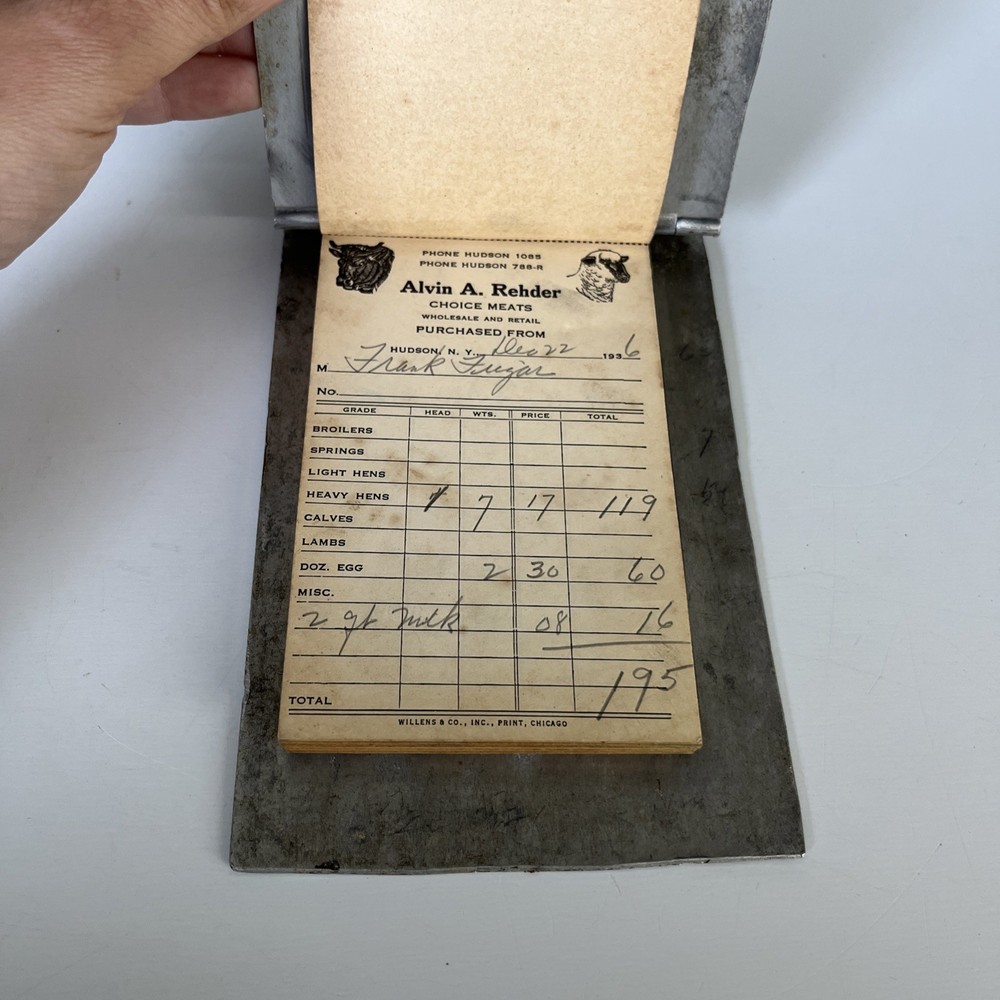 PHONE HUDSON 1085
PHONE HUDSON 788-R
Alvin A. Rehder
CHOICE MEATS
WHOLESALE AND RETAIL
PURCHASED FROM
HUDSON, N. Y. Dec 22 1936
M Frank
No.
GRADE HEAD WTS. PRICE TOTAL
BROILERS
SPRINGS
LIGHT HENS
HEAVY HENS 1 7 17 119
CALVES
LAMBS
DOZ. EGG 2 30 60
MISC.
2 qt Milk 08 16
195
TOTAL
WILLENS & CO., INC., PRINT, CHICAGO